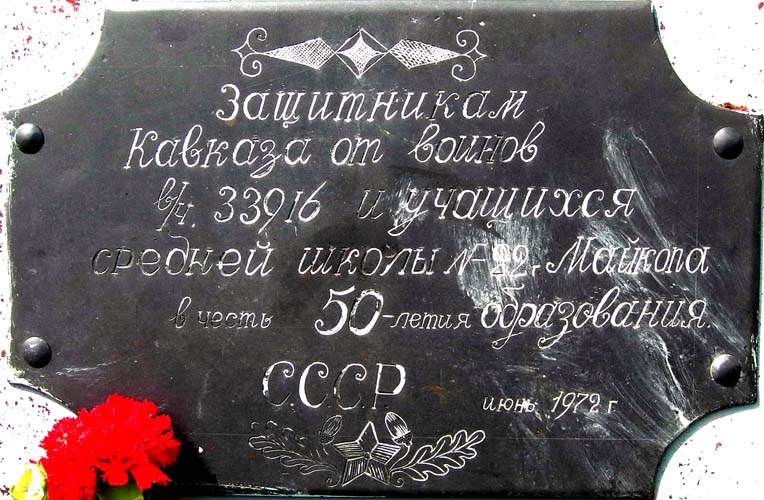 Защитникам
Кавказа от воинов
в/ч. 33916 и учащихся
средней школы № 22 г. Майкопа
в честь 50-летия образования
С.С.С.Р июнь 1972 г